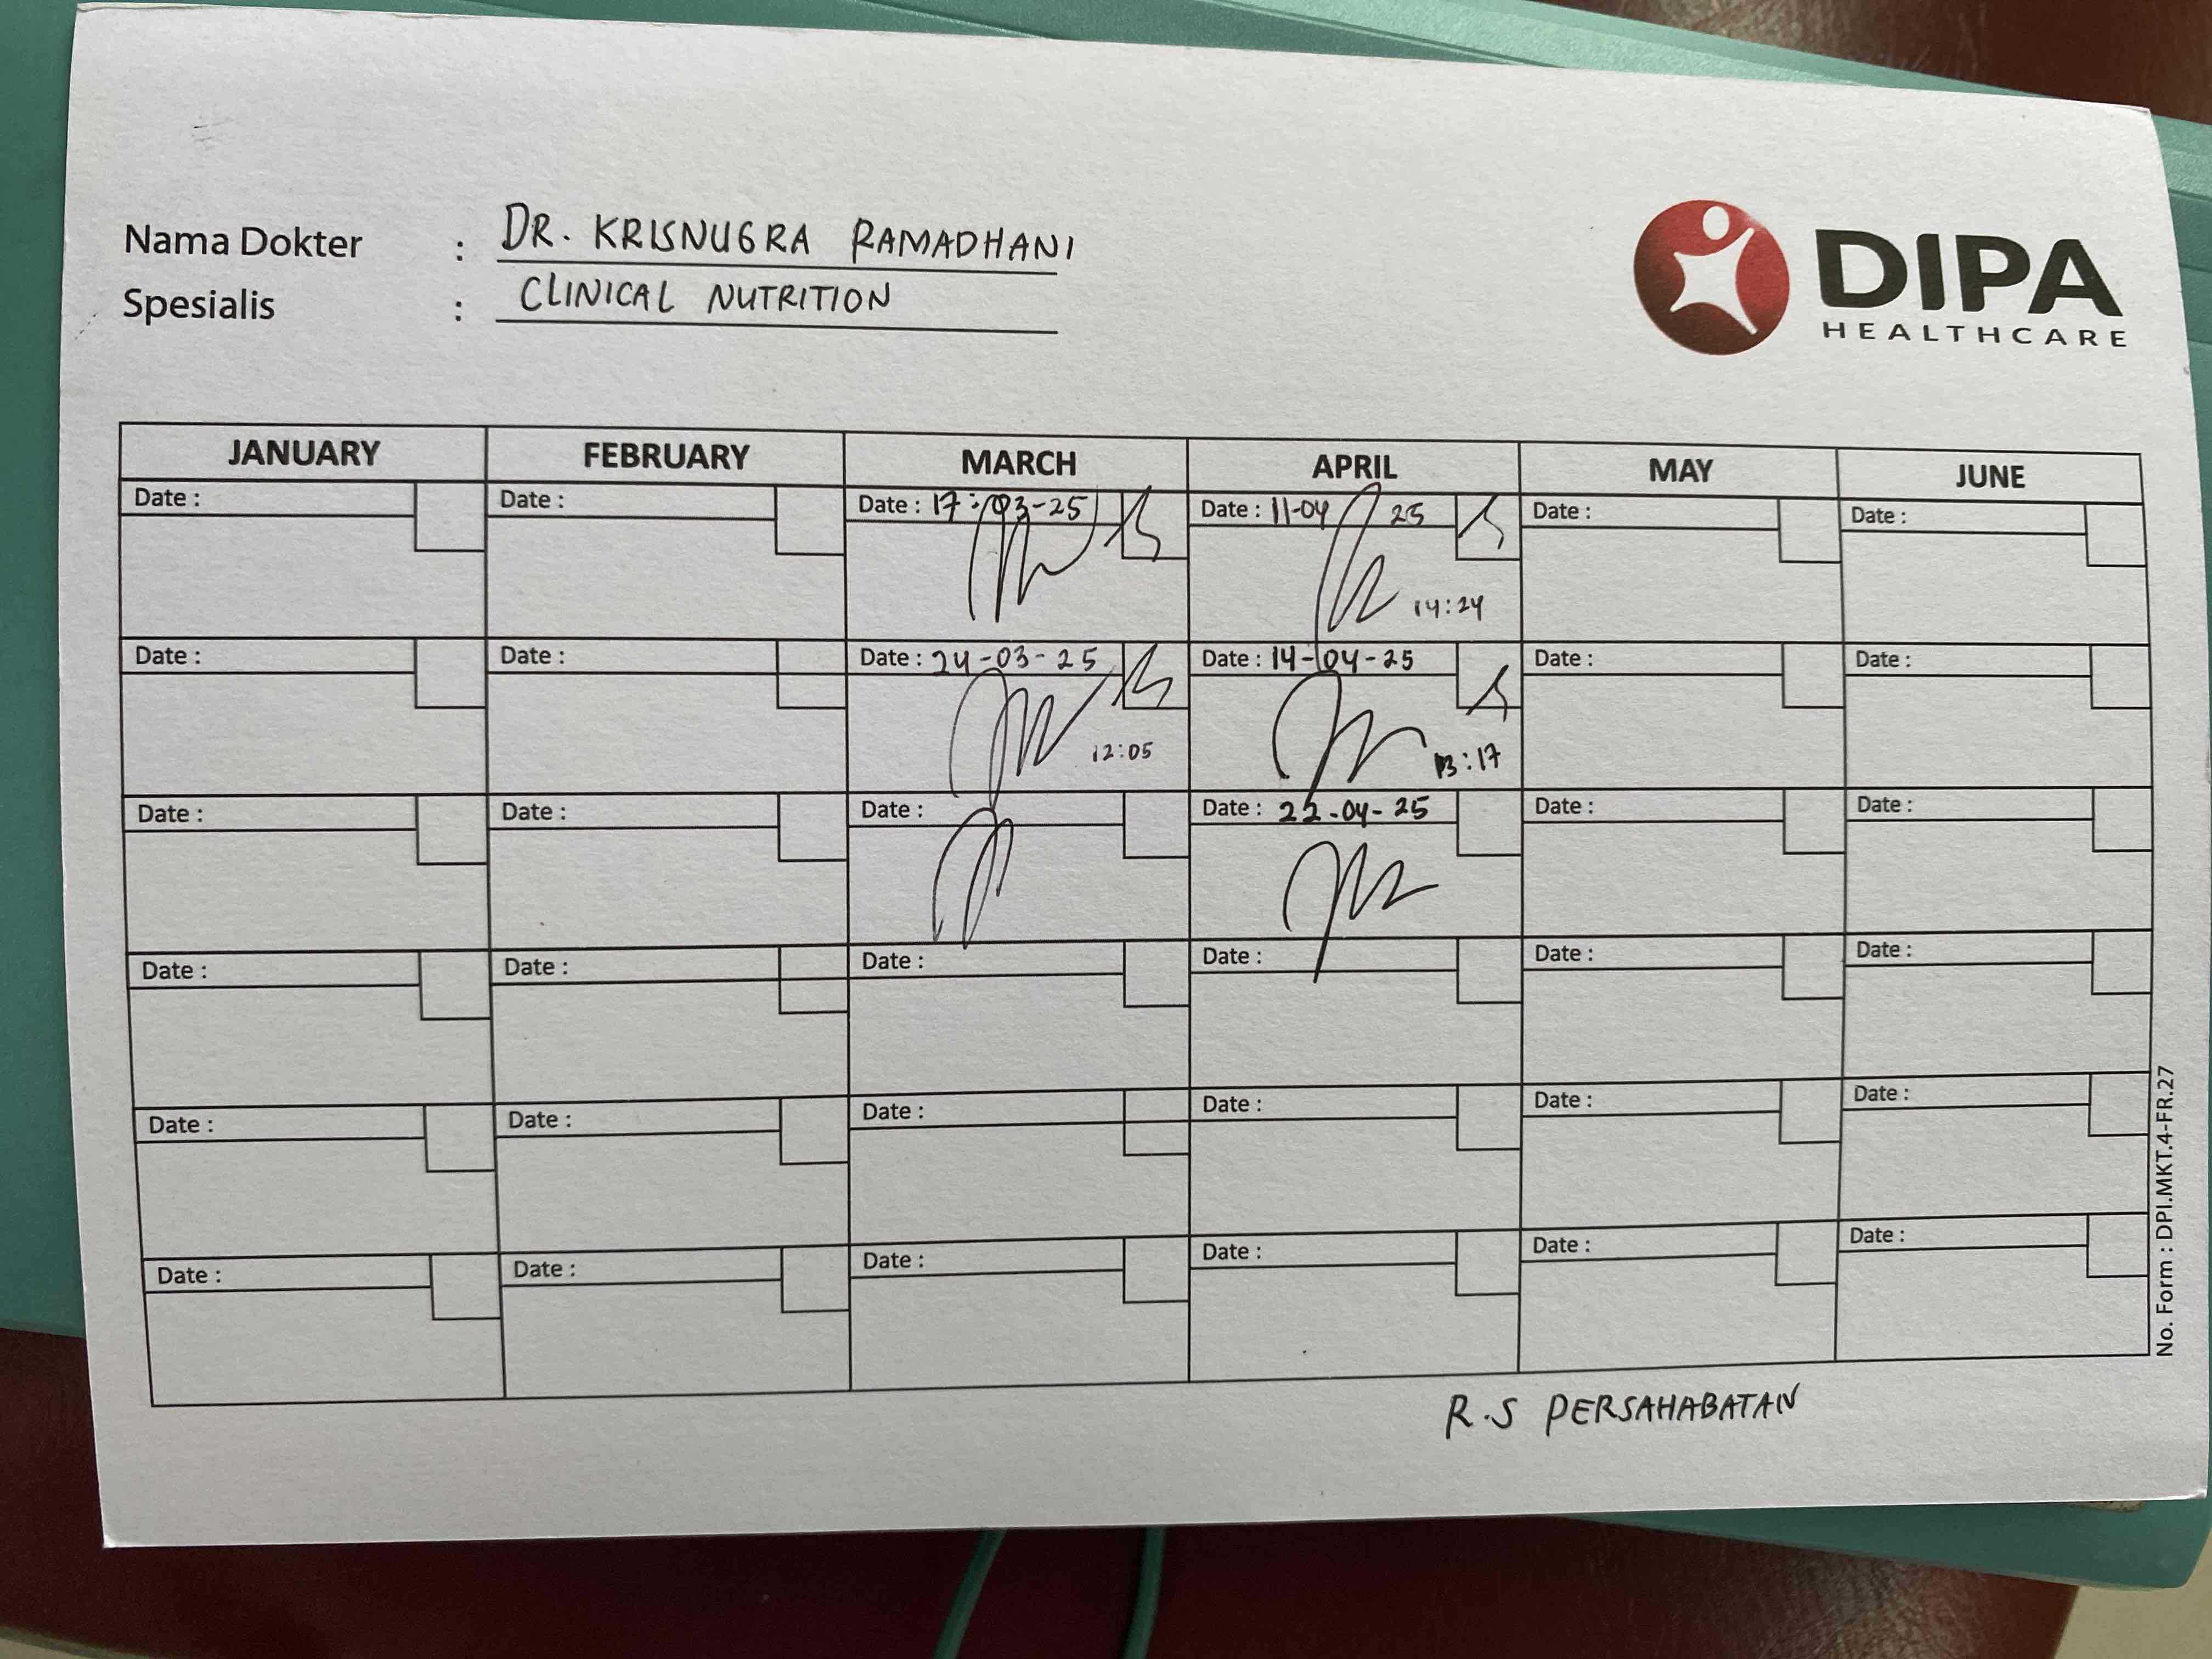 Nama Dokter : DR. KRISNUGRA RAMADHANI
Spesialis : CLINICAL NUTRITION
DIPA
HEALTHCARE
JANUARY FEBRUARY MARCH APRIL MAY JUNE
Date : Date : Date : 17-03-25 Date : 11-04 25 Date : Date :
14:24
Date : Date : Date : 24-03-25 Date : 14-04-25 Date : Date :
12:05 13:17
Date : Date : Date : Date : 22-04-25 Date : Date :
Date : Date : Date : Date : Date : Date :
Date : Date : Date : Date : Date : Date :
Date : Date : Date : Date : Date : Date :
No. Form : DPI.MKT.4-FR.27
R.S PERSAHABATAN